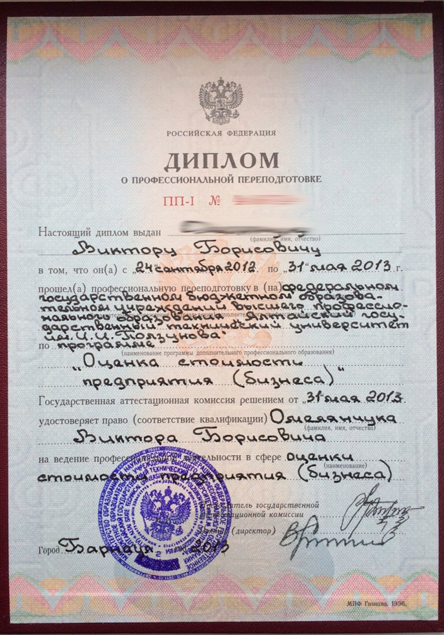 РОССИЙСКАЯ ФЕДЕРАЦИЯ
ДИПЛОМ
О ПРОФЕССИОНАЛЬНОЙ ПЕРЕПОДГОТОВКЕ
ПП-I №
Настоящий диплом выдан
(фамилия, имя, отчество)
Виктору Борисовичу
в том, что он(а) с „24 сентября 2012 по „31 мая 2013 г.
прошел(а) профессиональную переподготовку в (на) федеральном
государственном бюджетном образова-
тельном учреждении высшего профессио-
нального образования „Алтайский госу-
дарственный технический университет
им. И.И. Ползунова"
по программе
(наименование программы дополнительного профессионального образования)
„Оценка стоимости
предприятия (бизнеса)"
Государственная аттестационная комиссия решением от „31 мая 2013
удостоверяет право (соответствие квалификации) Омелянчука
(фамилия, имя, отчество)
Виктора Борисовича
на ведение профессиональной деятельности в сфере оценки
(наименование)
стоимости предприятия (бизнеса)
государственной
комиссии
(директор)
Город Барнаул 2013
МПФ Гознака. 1996.